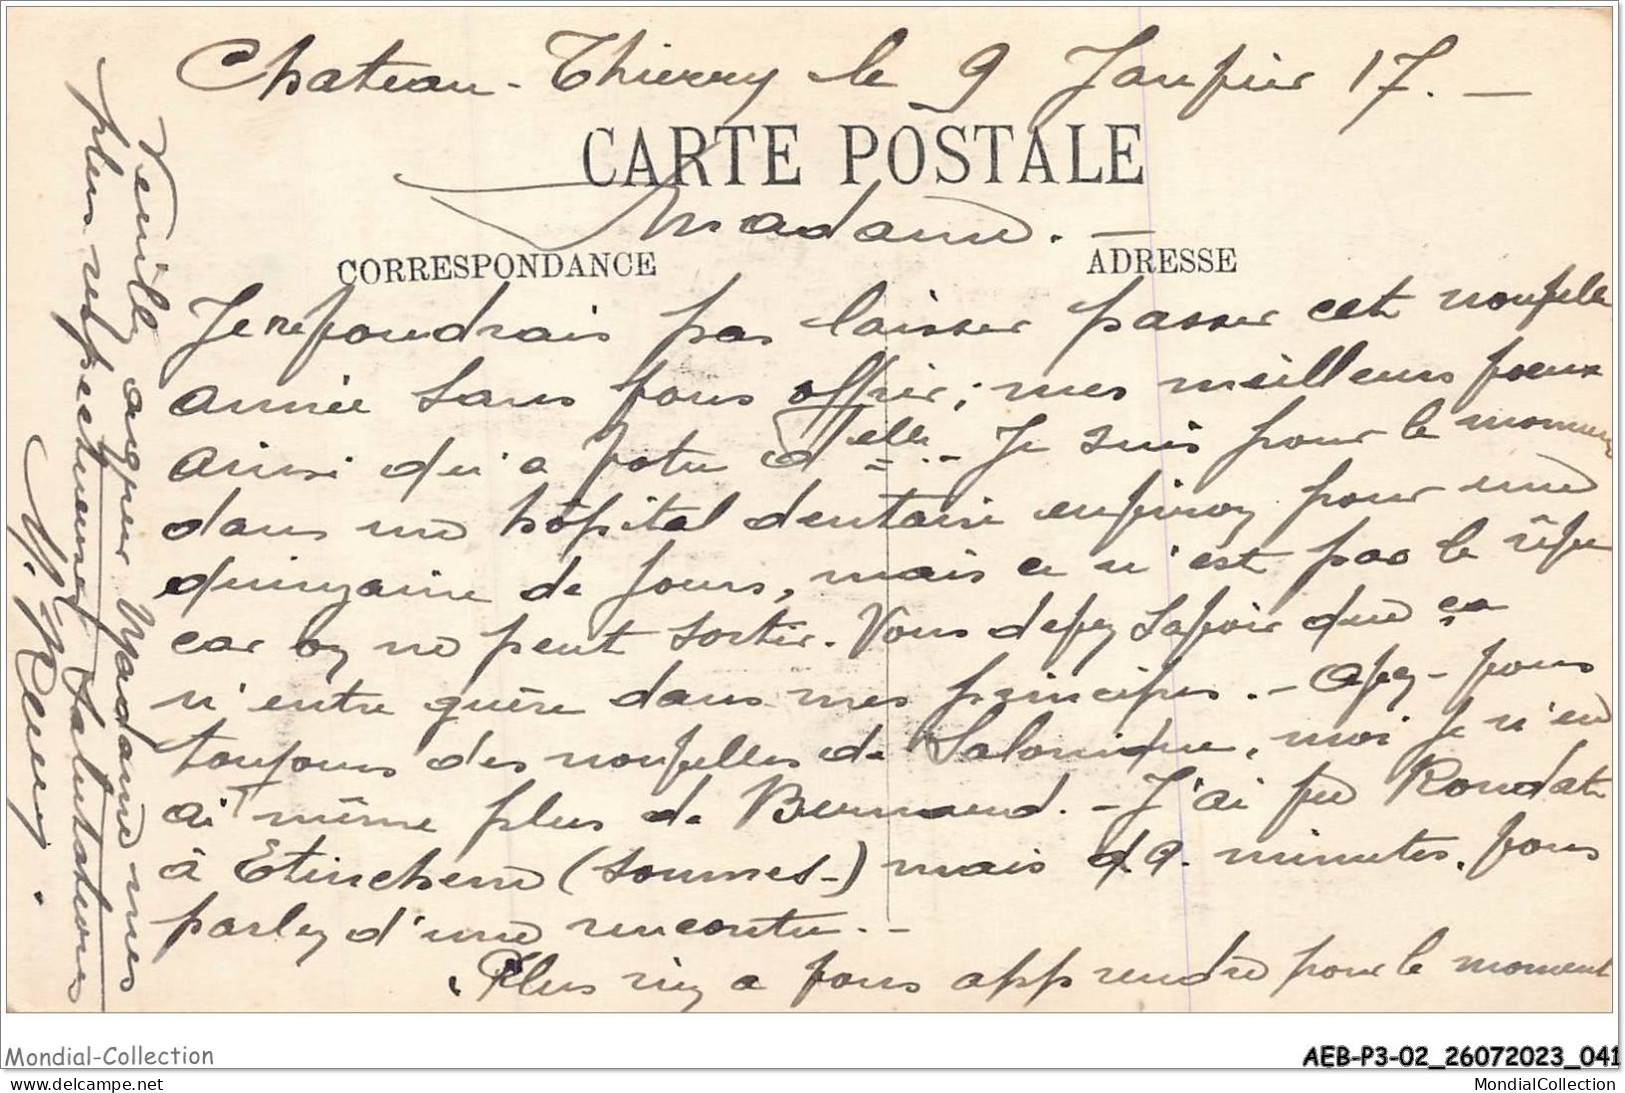 Chateau-Thierry le 9 Janvier 17. —
CARTE POSTALE
Madame. —
CORRESPONDANCE
ADRESSE
Je ne voudrais pas laisser passer cet nouvelle
année sans vous offrir ; mes meilleurs voeux
ainsi qu'a votre Delle. - Je suis pour le moment
dans une hôpital dentaire environ pour une
quinzaine de jours, mais ce n'est pas le rêve
car on ne peut sortir. Vous devez savoir que ça
n'entre guère dans mes principes. - Avez-vous
toujours des nouvelles de Salonique, moi je n'en
ai même plus de Bernard. - J'ai vu Roudate
à Etinehem (Sommes-) mais q.q. minutes. vous
parlez d'une rencontre. -
Plus rien a vous apprendre pour le moment
Veuillez agréer Madame mes
plus respectueuses salutations
Mondial-Collection
AEB-P3-02_26072023_041
www.delcampe.net
MondialCollection